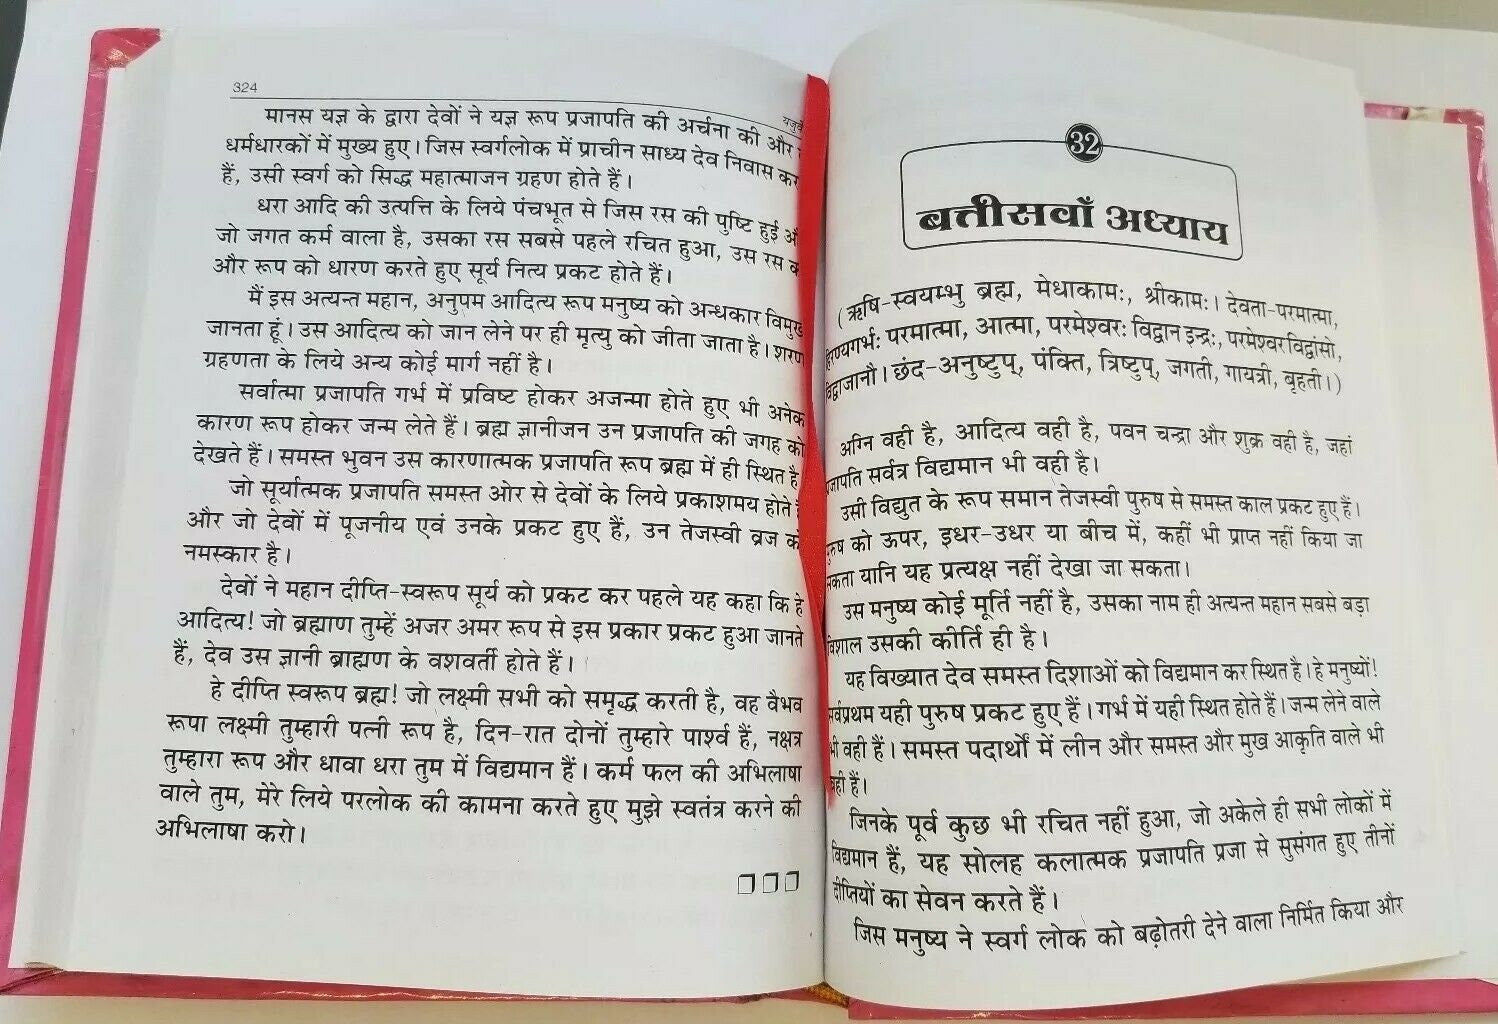 324
मानस यज्ञ के द्वारा देवों ने यज्ञ रूप प्रजापति की अर्चना की और
धर्मधारकों में मुख्य हुए। जिस स्वर्गलोक में प्राचीन साध्य देव निवास कर
हैं, उसी स्वर्ग को सिद्ध महात्माजन ग्रहण होते हैं।
धरा आदि की उत्पत्ति के लिये पंचभूत से जिस रस की पुष्टि हुई
जो जगत कर्म वाला है, उसका रस सबसे पहले रचित हुआ, उस रस
और रूप को धारण करते हुए सूर्य नित्य प्रकट होते हैं।
मैं इस अत्यन्त महान, अनुपम आदित्य रूप मनुष्य को अन्धकार विमुख
जानता हूं। उस आदित्य को जान लेने पर ही मृत्यु को जीता जाता है। शरण
ग्रहणता के लिये अन्य कोई मार्ग नहीं है।
सर्वात्मा प्रजापति गर्भ में प्रविष्ट होकर अजन्मा होते हुए भी अनेक
कारण रूप होकर जन्म लेते हैं। ब्रह्म ज्ञानीजन उन प्रजापति की जगह को
देखते हैं। समस्त भुवन उस कारणात्मक प्रजापति रूप ब्रह्म में ही स्थित है
जो सूर्यात्मक प्रजापति समस्त ओर से देवों के लिये प्रकाशमय होते
और जो देवों में पूजनीय एवं उनके प्रकट हुए हैं, उन तेजस्वी व्रज को
नमस्कार है।
देवों ने महान दीप्ति-स्वरूप सूर्य को प्रकट कर पहले यह कहा कि हे
आदित्य! जो ब्राह्मण तुम्हें अजर अमर रूप से इस प्रकार प्रकट हुआ जानते
हैं, देव उस ज्ञानी ब्राह्मण के वशवर्ती होते हैं।
हे दीप्ति स्वरूप ब्रह्म! जो लक्ष्मी सभी को समृद्ध करती है, वह वैभव
रूपा लक्ष्मी तुम्हारी पत्नी रूप है, दिन-रात दोनों तुम्हारे पार्श्व हैं, नक्षत्र
तुम्हारा रूप और धावा धरा तुम में विद्यमान हैं। कर्म फल की अभिलाषा
वाले तुम, मेरे लिये परलोक की कामना करते हुए मुझे स्वतंत्र करने की
अभिलाषा करो।
32
बत्तीसवाँ अध्याय
(ऋषि-स्वयम्भु ब्रह्म, मेधाकामः, श्रीकामः। देवता-परमात्मा,
हिरण्यगर्भः परमात्मा, आत्मा, परमेश्वरः विद्वान इन्द्रः, परमेश्वरविद्वांसो,
विद्वाजानौ। छंद-अनुष्टुप्, पंक्ति, त्रिष्टुप्, जगती, गायत्री, बृहती।)
अग्नि वही है, आदित्य वही है, पवन चन्द्रा और शुक्र वही है, जहां
प्रजापति सर्वत्र विद्यमान भी वही है।
उसी विद्युत के रूप समान तेजस्वी पुरुष से समस्त काल प्रकट हुए हैं।
पुरुष को ऊपर, इधर-उधर या बीच में, कहीं भी प्राप्त नहीं किया जा
सकता यानि यह प्रत्यक्ष नहीं देखा जा सकता।
उस मनुष्य कोई मूर्ति नहीं है, उसका नाम ही अत्यन्त महान सबसे बड़ा
विशाल उसकी कीर्ति ही है।
यह विख्यात देव समस्त दिशाओं को विद्यमान कर स्थित है। हे मनुष्यों!
सर्वप्रथम यही पुरुष प्रकट हुए हैं। गर्भ में यही स्थित होते हैं। जन्म लेने वाले
भी वही हैं। समस्त पदार्थों में लीन और समस्त और मुख आकृति वाले भी
वही हैं।
जिनके पूर्व कुछ भी रचित नहीं हुआ, जो अकेले ही सभी लोकों में
विद्यमान हैं, यह सोलह कलात्मक प्रजापति प्रजा से सुसंगत हुए तीनों
दीप्तियों का सेवन करते हैं।
जिस मनुष्य ने स्वर्ग लोक को बढ़ोतरी देने वाला निर्मित किया और